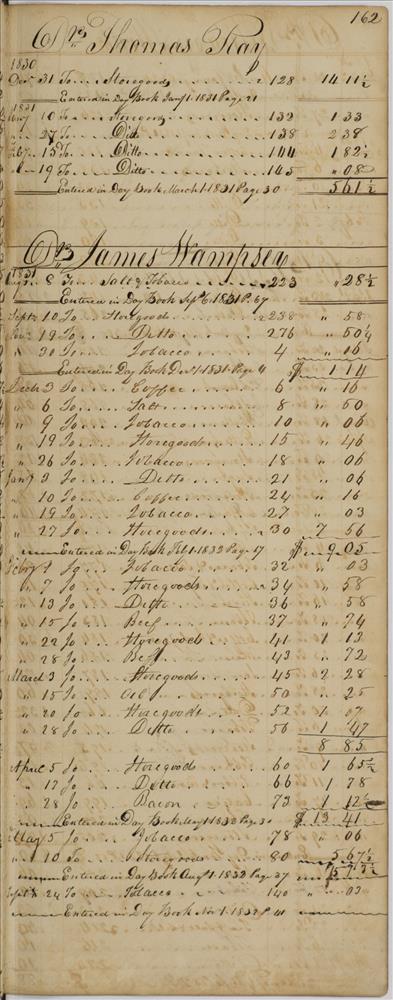 162
Drs Thomas Ray
1830
Decr 31 To.... Storegoods 128 14 11½
Entered in Day Book Jany 1. 1831 Page 21
1831
Jany 10 To.... Storegoods 132 1 33
" 27 To.... Did. 138 2 38
Feby 15 To.... Ditto 144 1 82½
" 19 To.... Ditto 145 " 08
Entered in Day Book March 1. 1831 Page 30 5 61½
Drs James Wampsey
1831
8 To.... Salt & Tobacco 223 " 28½
Entered in Day Book Sept 6. 1831 P. 67
Septr 10 To.... Storegoods 238 " 58
19 To.... Ditto 276 " 50¼
" 30 To.... Tobacco 4 " 06
Entered in Day Book Decr 1. 1831. Page 4 $ 1 14
Decr 3 To.... Coffee 6 " 16
" 6 To.... Salt 8 " 50
" 9 To.... Tobacco 10 " 06
" 19 To.... Storegoods 15 " 46
" 26 To.... Tobacco 18 " 06
Jany 3 Jo.... Ditto 21 " 06
" 10 Jo.... Coffee 24 " 16
" 19 Jo.... Tobacco 27 " 03
" 27 Jo.... Storegoods 30 7 56
Entered in Day Book Feb 1. 1832 Page 17 $ 9 05
Feby 1 Jo.... Tobacco 32 " 03
" 7 Jo.... Storegoods 34 " 58
" 13 Jo.... Ditto 36 " 58
" 15 Jo.... Beef 37 " 74
" 22 Jo.... Storegoods 41 1 13
" 28 Jo.... Beef 43 " 72
March 3 Jo.... Storegoods 45 2 28
" 15 Jo.... 50 " 25
" 20 Jo.... Storegoods 52 1 07
" 28 Jo.... Ditto 56 1 47
8 85
April 5 Jo.... Storegoods 60 1 65½
" 17 Jo.... Ditto 66 1 78
" 28 Jo.... Bacon 73 1 12½
Entered in Day Book May 1 1832 Page 30 $ 13 41
May 5 Jo.... Tobacco 78 " 06
" 10 Jo.... Storegoods 80 5 67½
Entered in Day Book Augt 1. 1832 Page 37 5 73½
Septr 24 Jo.... Tobacco 140 " 03
Entered in Day Book Nov 1. 1832 P 41